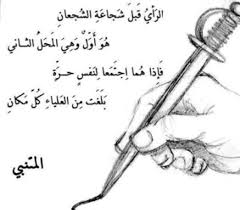 الرَأيُ قَبلَ شَجاعَةِ الشُجعانِ
هُوَ أَوَّلٌ وَهِيَ المَحَلُّ الثاني
فَإِذا هُما اِجتَمَعا لِنَفسٍ حرَّةٍ
بَلَغَت مِنَ العَلياءِ كُلَّ مَكانِ
المتنبي